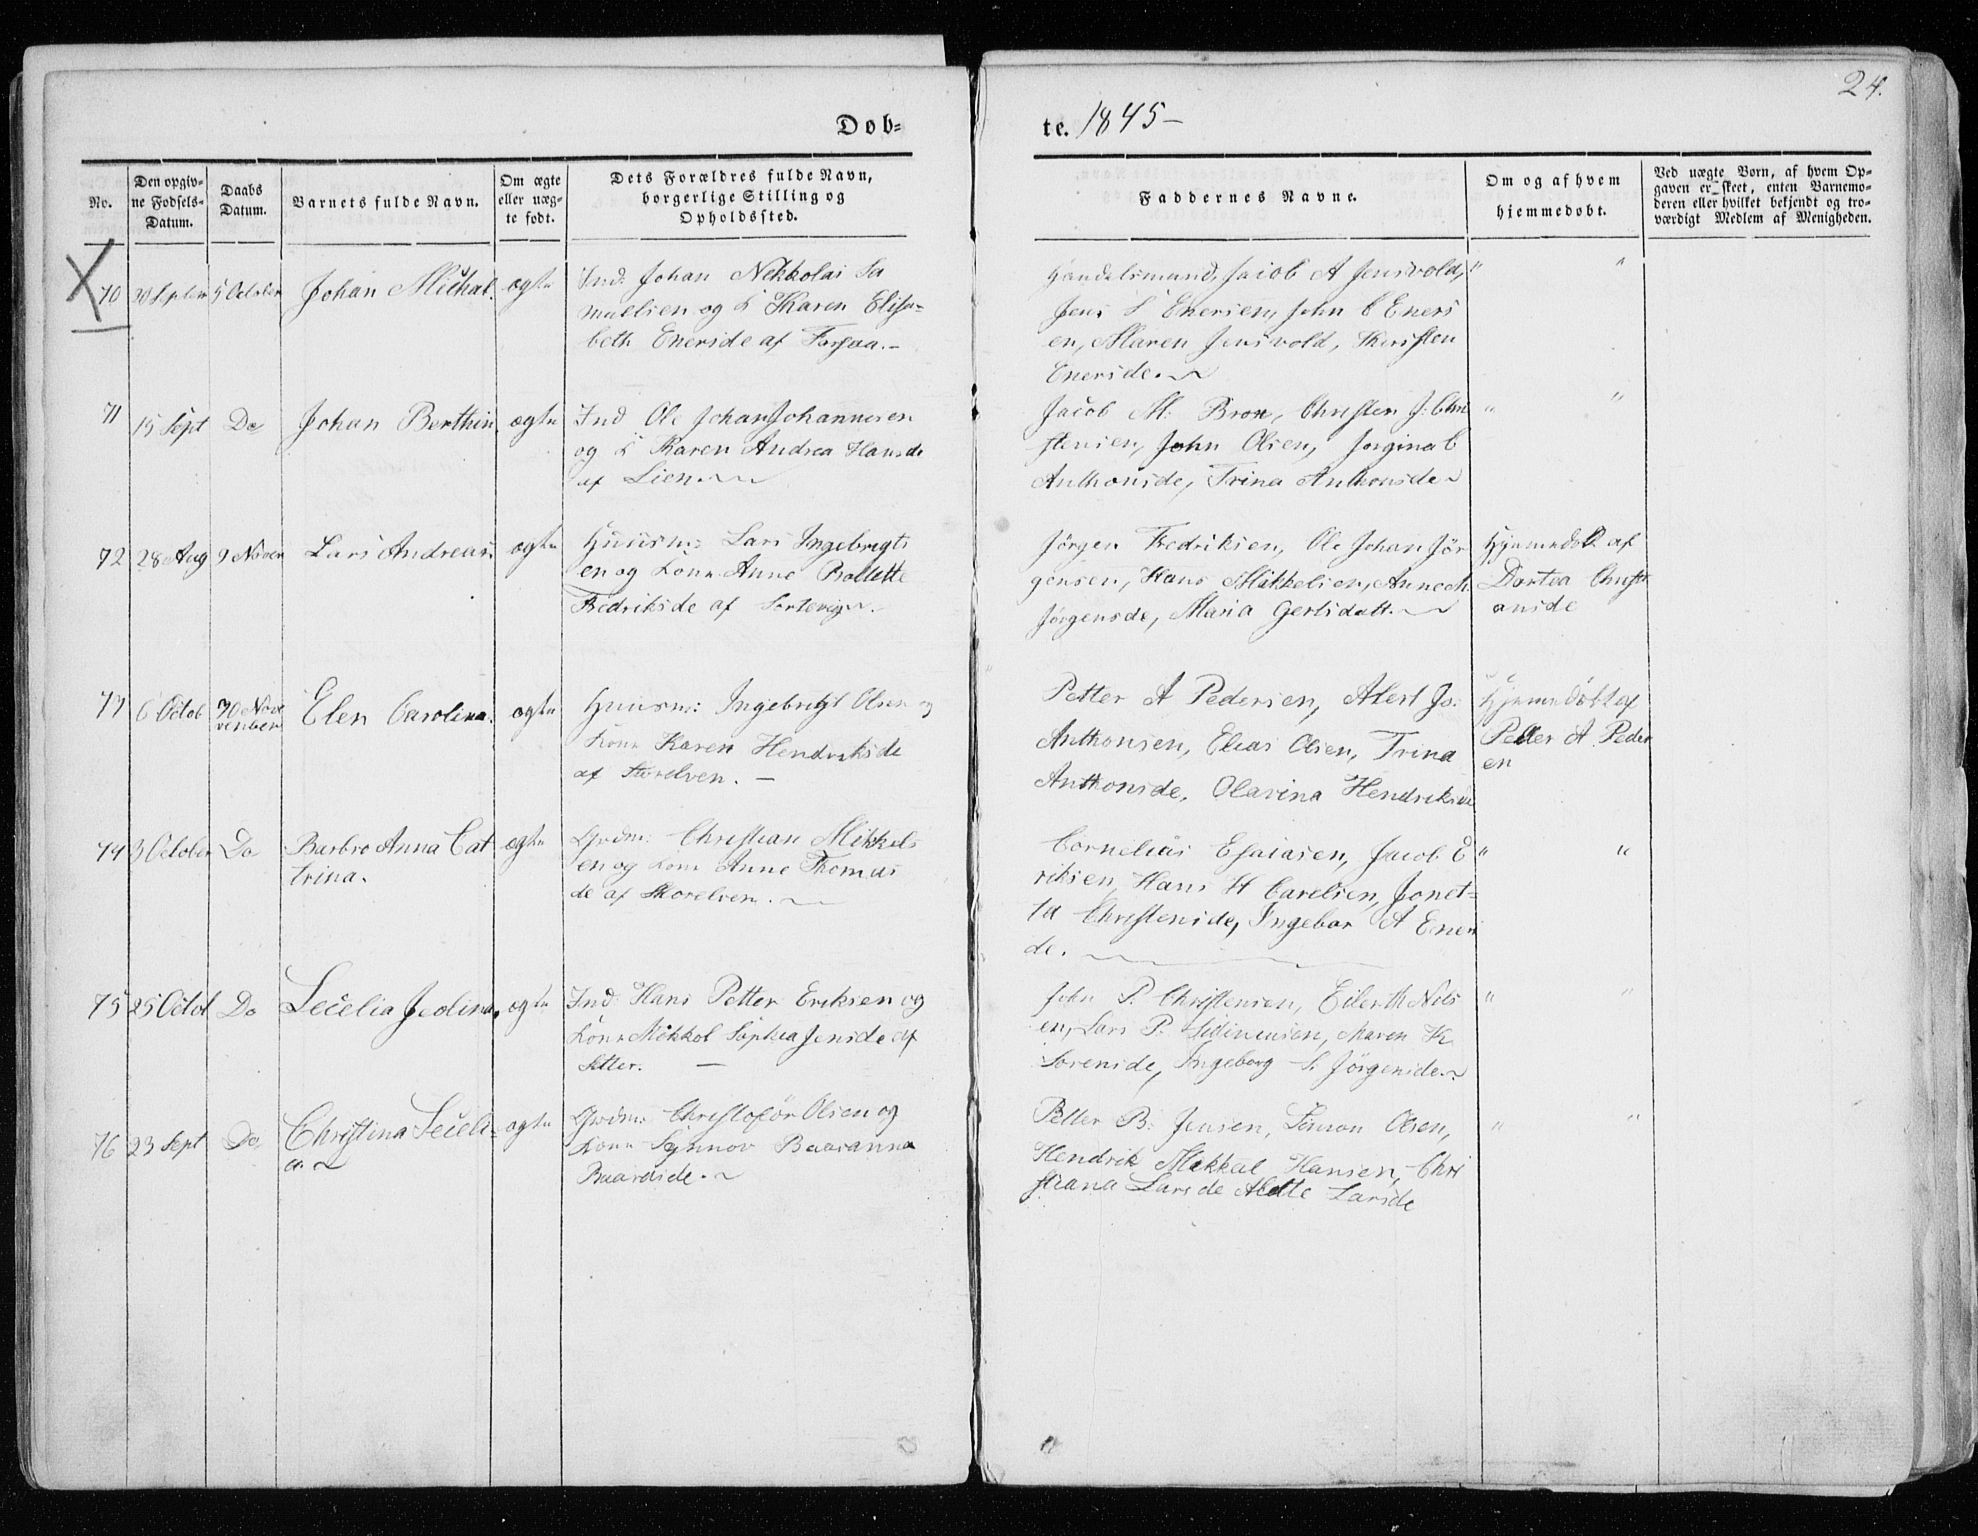 24.
Døb-
te. 1845-
No.
Den opgiv-
ne Fødsels-
Datum.
Daabs
Datum.
Barnets fulde Navn.
Om ægte
eller uæg-
te født.
Dets Forældres fulde Navn,
borgerlige Stilling og
Opholdssted.
Faddernes Navne.
Om og af hvem
hjemmedøbt.
Ved uægte Børn, af hvem Op-
gaven er skeet, enten Barnemo-
deren eller hvilket bekjendt og tro-
værdigt Medlem af Menigheden.
70 5 October Johan Michal. ægte
Ind: Johan Nekkolai Sa
muelsen og K Karen Elisa-
beth Enersde af Forsaa.-
Handelsmand, Jacob A Jensvold, " "
Jens S Enersen, John C Eners
en, Maren Jensvold, Kersten
Enersde.
71 15 Sept Do Johan Berthin. ægte
Ind Ole Johan Johannesen
og K Karen Andrea Hansde
af Lien.
Jacob M: Bron, Christen J: Chri " "
stensen, John Olsen, Jørgina C
Anthonsde, Trina Anthonsde
72 28 Aug 9 Nover Lars Andreas. ægte
Huusm: Lars Ingebrigts
en og Kone Anne Bollette
Fredriksde af Sortevig.
Jörgen Fredriksen, Ole Johan Jör
gensen, Hans Mikkelsen, Anne M
Jörgensde, Maria Gertsdatt.
Hjemmdöbt af
Dortea Christi
ansde
73 6 Octob 30 Nov
vember Elen Carolina. ægte
Huusm: Ingebrigt Olsen og
Kone Karen Hendriksde
af Storelven. -
Petter A Pedersen, Abert Jo:
Anthonsen, Elias Olsen, Trina
Anthonsde, Olavina Hendriksde
Hjemmdöbt af
Petter A Peder
en
74 3 October Do Barbro Anna Cat
trina. ægte
Grdm: Christian Mikkels
en og Kone Anne Thomas
de af Storelven.
Cornelius Esaiasen, Jacob E " "
riksen, Hans H Carelsen, Jonet-
ta Christensde, Ingebor A Eners
de.
75 25 Octob Do Secelia Jedina. ægte
Ind: Hans Petter Eriksen og
Kone Mökkol Sophia Jensde af
Sætter. -
John P. Christensen, Eilerth Nels " "
en, Lars P. Maren K
Sorensde, Ingeborg S. Jörgensde.
76 23 Sept Do Christina Seceli-
a. ægte
Grdm: Christoför Olsen og
Kone Synnov Baaranna
Baardsde.
Petter B: Jensen, Simon Olsen, " "
Hendrik Mikkal Hansen, Chri
stiana Larsde Alette Larsde